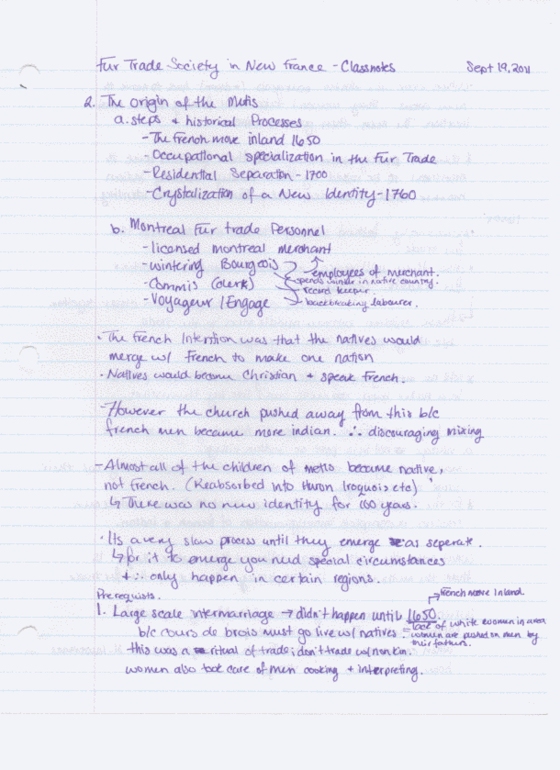 Fur Trade Society in New France - Classnotes Sept 19, 2011
2. The Origin of the Metis
a. steps + historical Processes
- The French move inland 1650
- Occupational specialization in the Fur Trade
- Residential Separation - 1700
- Crystalization of a New Identity - 1760
b. Montreal Fur trade Personnel
- licensed montreal merchant
- wintering Bourgeois employees of merchant.
spends winter in native country.
- Commis (clerk) record keeper.
- Voyageur / Engage → backbreaking labourer.
· The French Intention was that the natives would
merge w/ French to make one nation
· Natives would become Christian + speak French.
- However the church pushed away from this b/c
french men became more indian. ∴ discouraging mixing
- Almost all of the children of metis became native,
not French. (Reabsorbed into Huron Iroquois etc)
↳ There was no new identity for 100 years.
· Its a very slow process until they emerge as seperate.
↳ for it to emerge you need special circumstances
+ ∴ only happen in certain regions.
Prerequists. → French move inland
1. Large scale intermarriage → didn't happen until 1650.
- lack of white women in area
b/c cours de brois must go live w/ natives - women are pushed on men by
their fathers.
this was a ritual of trade; don't trade w/ non kin.
women also took care of men cooking + interpreting.